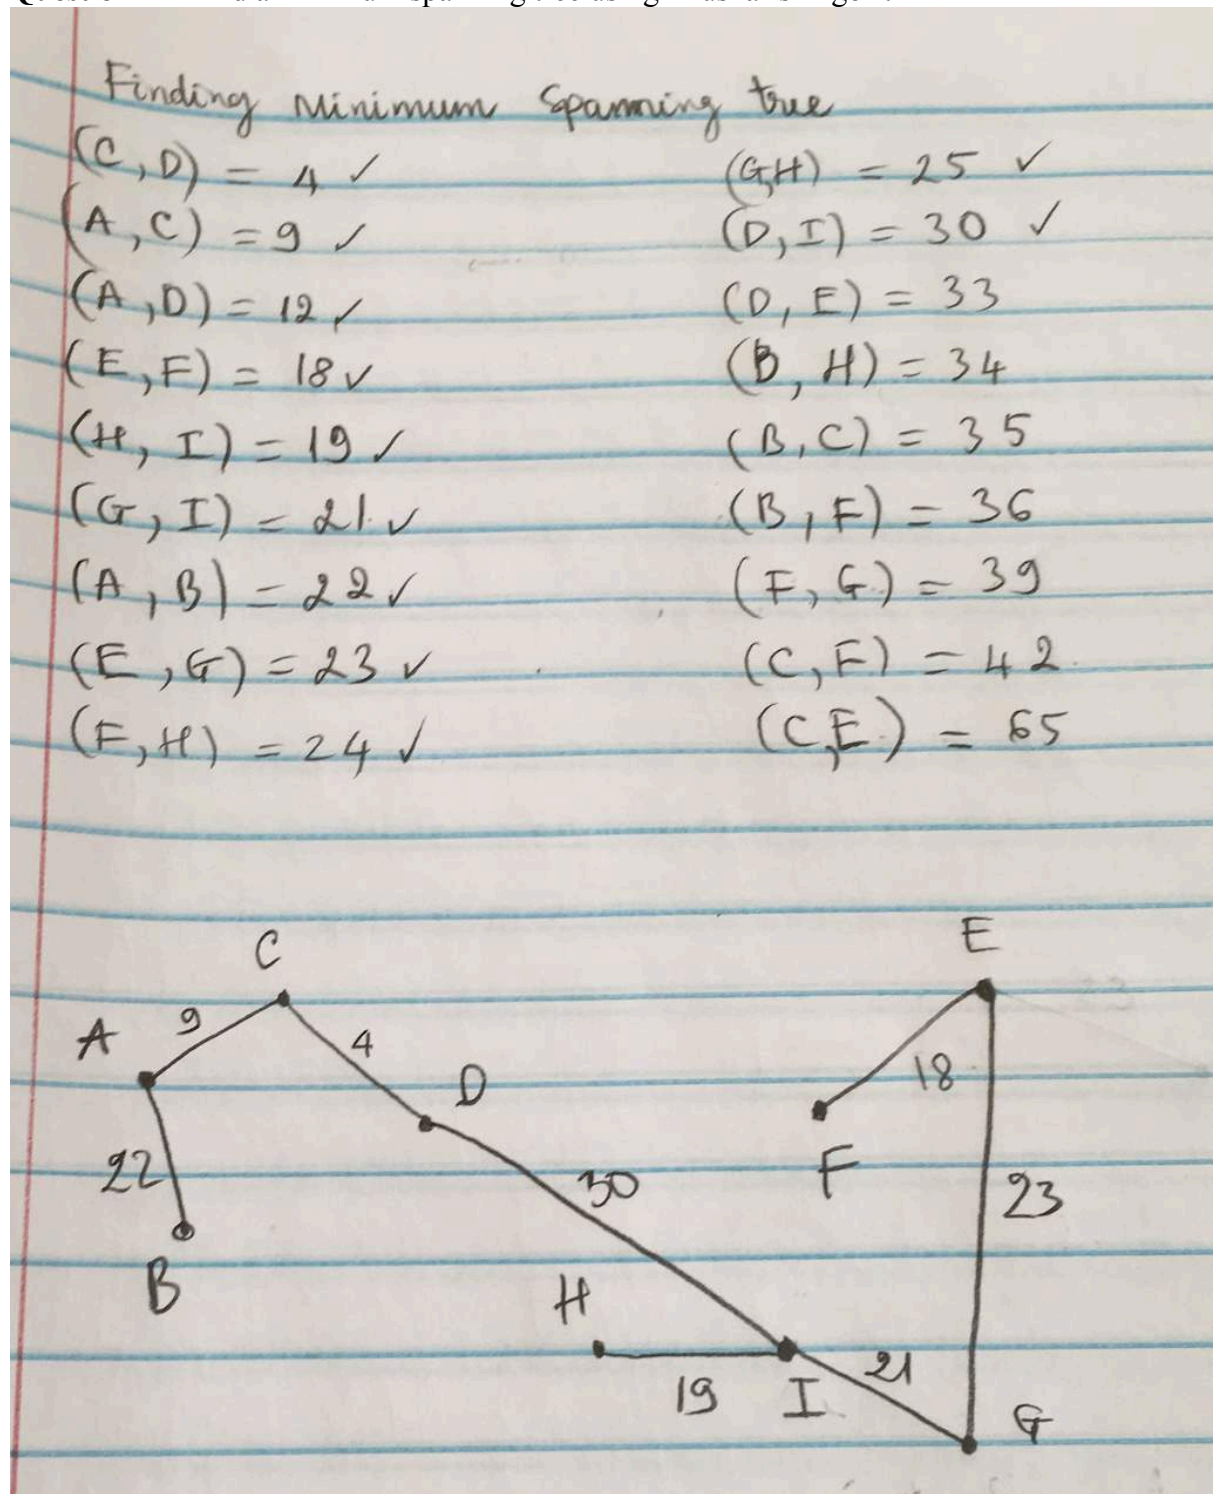 Finding Minimum Spanning tree
(C,D) = 4 ✓
(A,C) = 9 ✓
(A,D) = 12 ✓
(E,F) = 18 ✓
(H,I) = 19 ✓
(G,I) = 21 ✓
(A,B) = 22 ✓
(E,G) = 23 ✓
(F,H) = 24 ✓
(G,H) = 25 ✓
(D,I) = 30 ✓
(D,E) = 33
(B,H) = 34
(B,C) = 35
(B,F) = 36
(F,G) = 39
(C,F) = 42
(C,E) = 65
C
E
9
A
4
D
18
F
22
30
23
B
H
21
19
I
G